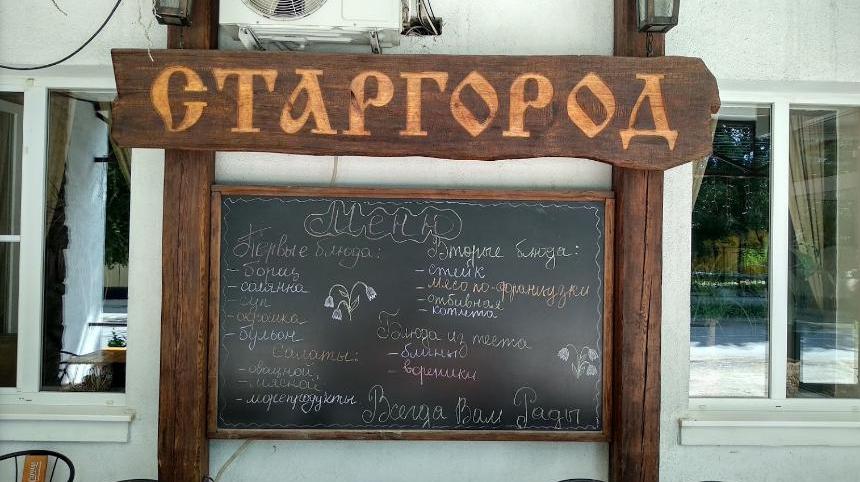 СТАРГОРОД
Меню
Первые блюда:
- борщ
- солянка
- суп
- окрошка
- бульон
Салаты:
- овощной,
- мясной
- морепродукты
Вторые блюда:
- стейк
- мясо по-французки
- отбивная
- котлета
Блюда из теста
- блины
- вареники
Всегда Вам Рады